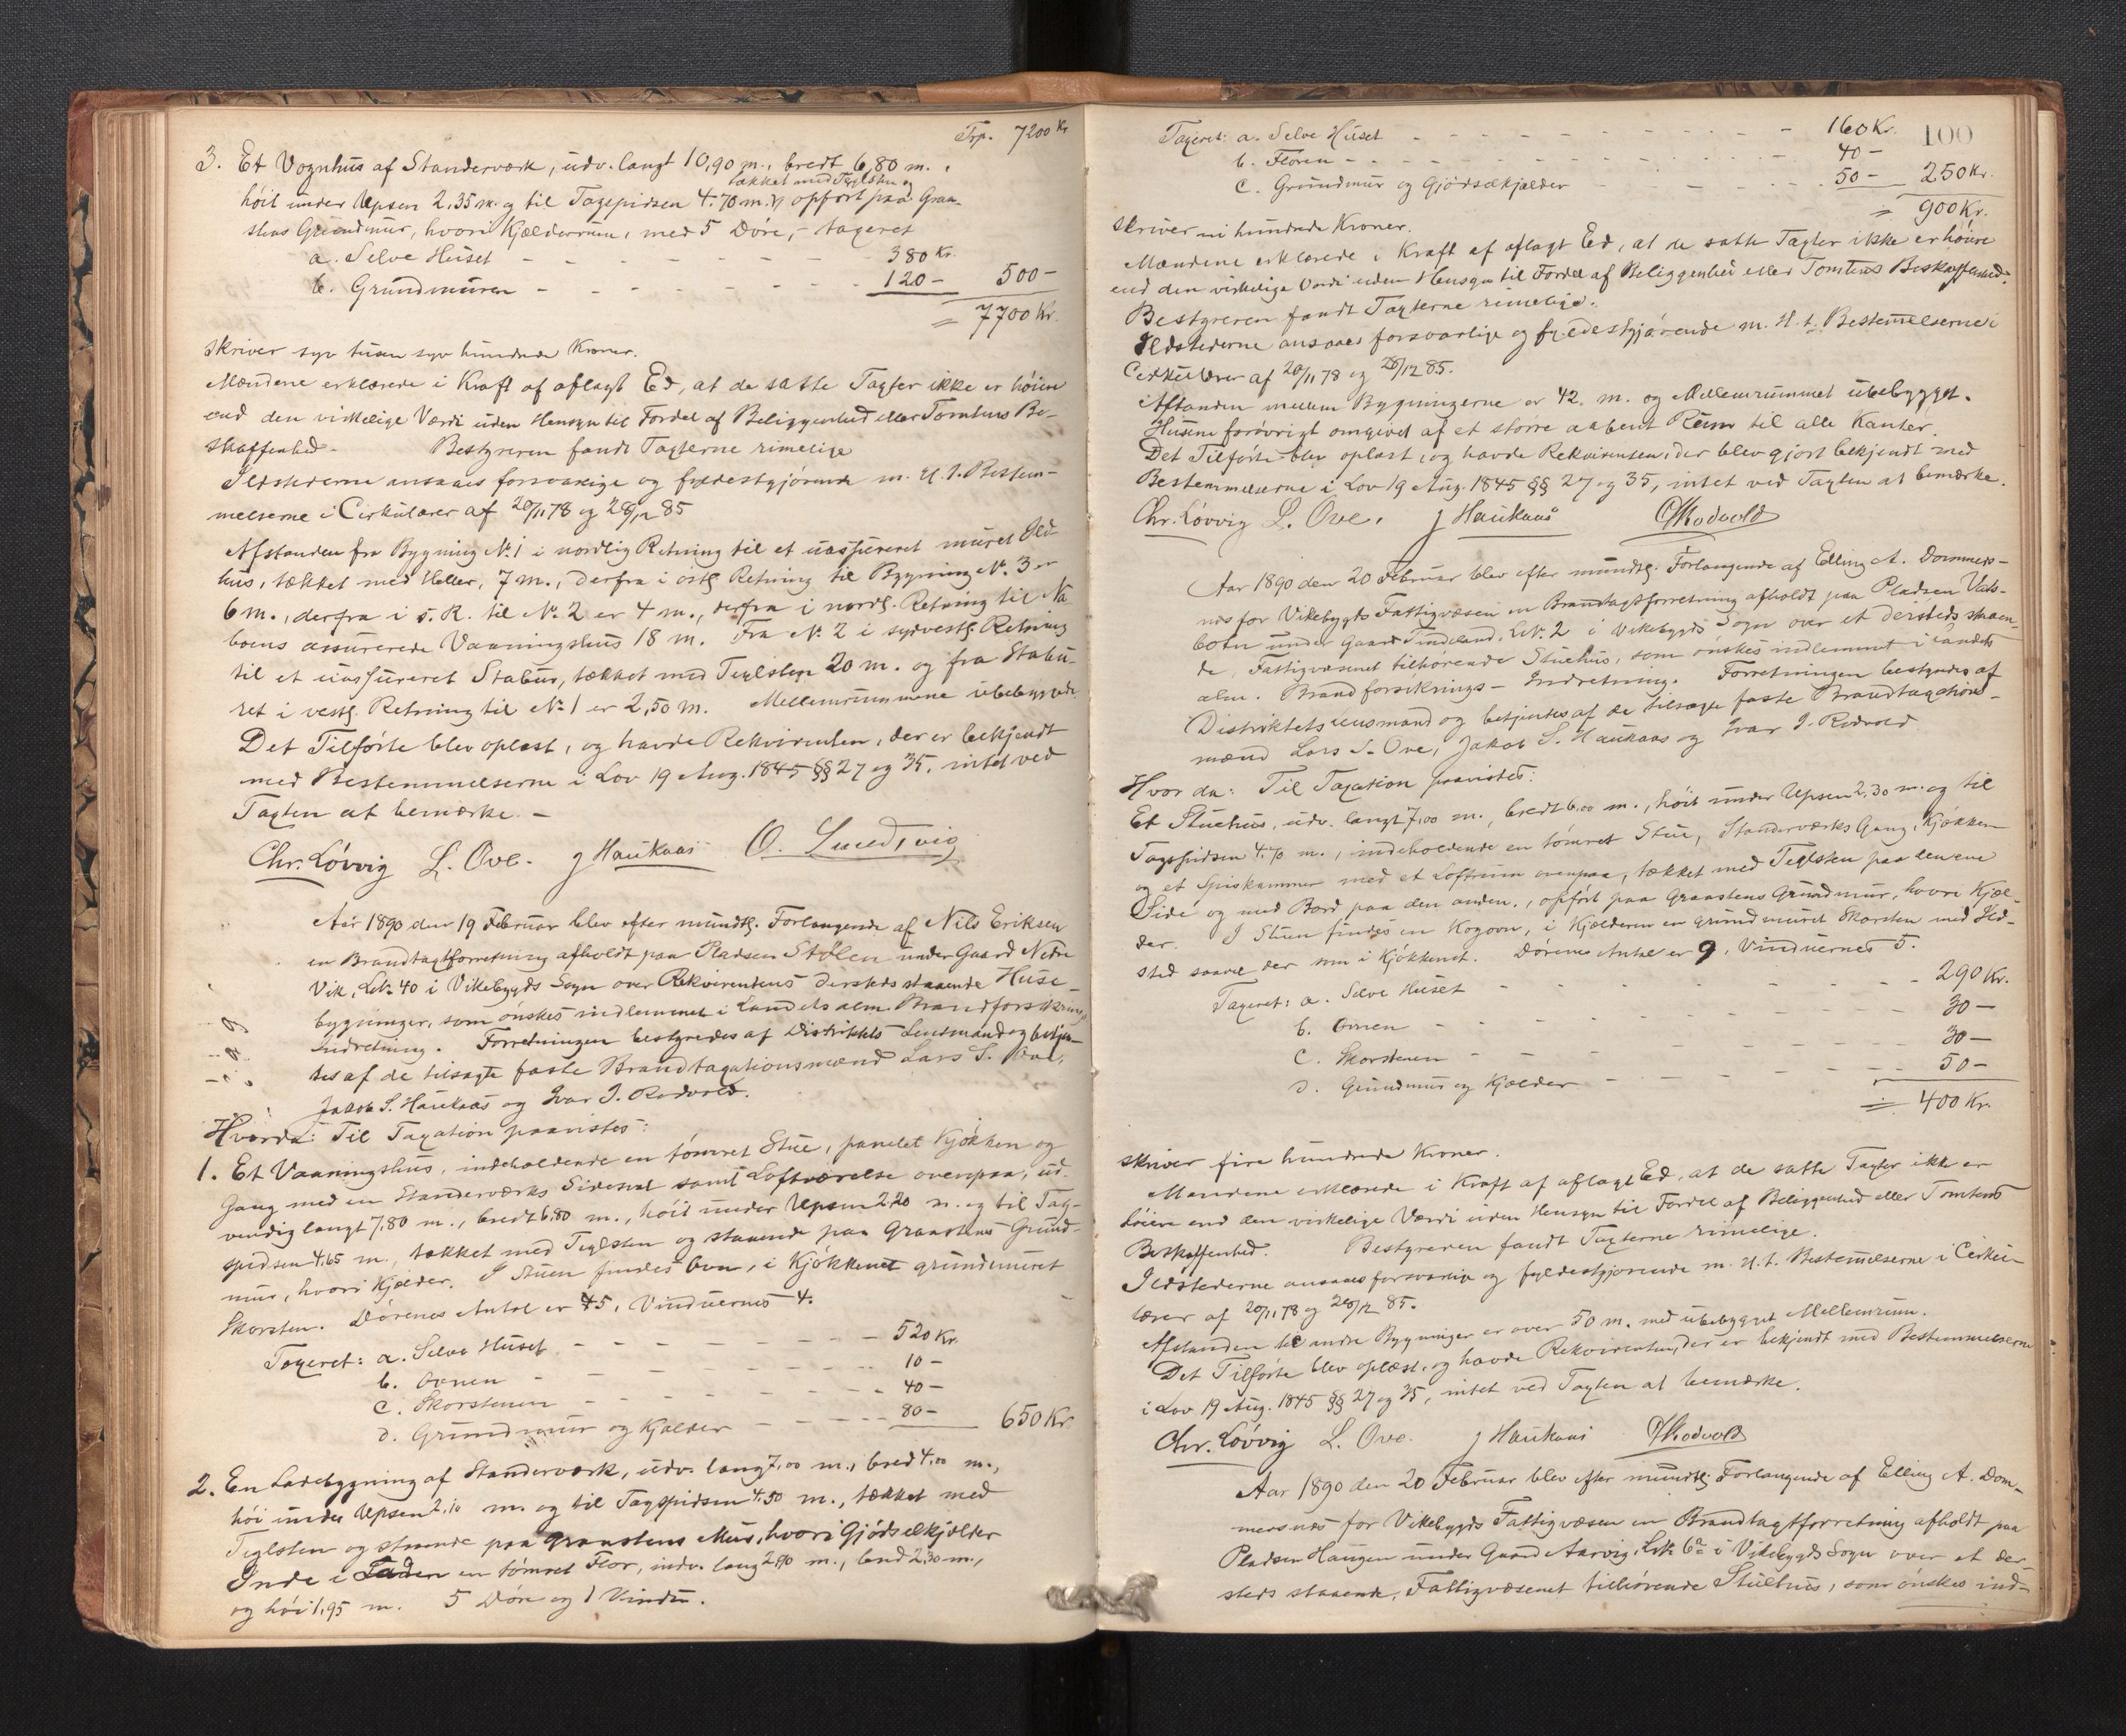 Trp. 7200 Kr
3. Et Vognhus af Standerværk, udv. langt 10,90 m., bredt 6,80 m.,
tækket med Teglsten og
höit under Upsen 2,35 m. og til Tagspidsen 4,70 m. opfört paa Graa-
stens Grundmur, hvori Kjælderrum, med 5 Döre, - taxeret
a. Selve Huset - - - 380 Kr.
b. Grundmuren - - - 120 - 500 -
= 7700 Kr.
skriver syv tusen syv hundrede Kroner.
Mændene erklærede i Kraft af aflagt Ed, at de satte Taxter ikke er höiere
end den virkelige Værdi uden Hensyn til Fordel af Beliggenhed eller Tomtens Be-
skaffenhed. Bestyreren fandt Taxterne rimelige
Ildstederne ansaaes forsvarlige og fyldestgjörende m. H. t. Bestem-
melserne i Cirkulærer af 20/11 78 og 28/12 85
Afstanden fra Bygning No. 1 i nordlig Retning til et uassureret muret Ild-
hus, tækket med Heller, 7 m., derfra i östl. Retning til Bygning No. 3 er
6 m., derfra i s. R. til No. 2 er 4 m., derfra i nordl. Retning til Na-
boens assurerede Vaaningshus 18 m. Fra No. 2 i sydvestl. Retning
til et uassureret Stabur, tækket med Teglsten 20 m. og fra Stabu-
ret i vestl. Retning til No. 1 er 2,50 m. Mellemrummene ubebyggede
Det Tilförte blev oplæst, og havde Rekvirenten, der er bekjendt
med Bestemmelserne i Lov 19 Aug. 1845 §§ 27 og 35, intet ved
Taxten at bemærke. -
Chr. Lövvig L. Ove. J Haukaas O. Lundsvig
Aar 1890 den 19 Februar blev efter mundtl. Forlangende af Nils Eriksen
en Brandtaxtforretning afholdt paa Pladsen Stölen under Gaard Nedre
Vik, LNo. 40 i Vikebygds Sogn over Rekvirentens dersteds staaende Huse-
bygninger, som önskes indlemmet i Landets alm. Brandforsikrings
Indretning. Forretningen bestyredes af Distriktets Lensmand og betjen-
tes af de tilsagte faste Brandtaxationsmænd Lars S. Ove,
Jakob S. Haukaas og Ivar I. Rodvold.
Hvorda: Til Taxation paavistes:
1. Et Vaaningshus, indeholdende en tömret Stue, panelet Kjökken og
Gang med en Standerværks Sidesval samt Loftværelse ovenpaa, ud-
vendig langt 7,80 m., bredt 6,80 m., höit under Upsen 2,20 m. og til Tag-
spidsen 4,65 m., tækket med Teglsten og staaende paa Graastens Grund-
mur, hvori Kjelder. I Stuen findes Ovn, i Kjökkenet grundmuret
Skorsten. Dörenes Antal er 5, Vinduernes 4.
Taxeret: a. Selve Huset - - - 520 Kr.
b. Ovnen - - - 10 -
c. Skorstenen - - - 40 -
d. Grundmur og Kjælder - - - 80 - 650 Kr.
2. En Ladebygning af Standerværk, udv. lang 7,00 m., bred 4,00 m.,
höi under Upsen 2,10 m. og til Tagspidsen 4,50 m., tækket med
Teglsten og staaende paa Graastens Mur, hvori Gjödselkjelder
Inde i Laden en tömret Flor, indv. lang 2,90 m., bred 2,30 m.,
og höi 1,95 m. 5 Döre og 1 Vindu.
100
Taxeret: a. Selve Huset - - - 160 Kr.
b. Floren - - - 40 -
c. Grundmur og Gjödselkjælder - - - 50 - 250 Kr.
= 900 Kr.
skriver ni hundrede Kroner.
Mændene erklærede i Kraft af aflagt Ed, at de satte Taxter ikke er höiere
end den virkelige Værdi uden Hensyn til Fordel af Beliggenhed eller Tomtens Beskaffenhed.
Bestyreren fandt Taxterne rimelige.
Ildstederne ansaaes forsvarlige og fyldestgjörende m. H. t. Bestemelserne i
Cirkulærer af 20/11 78 og 28/12 85.
Afstanden mellem Bygningerne er 42 m. og Mellemrummet ubebygget.
Husene forövrigt omgivet af et större aabent Rum til alle Kanter.
Det Tilförte blev oplæst, og havde Rekvirenten, der blev gjort bekjendt med
Bestemmelserne i Lov 19 Aug. 1845 §§ 27 og 35, intet ved Taxten at bemærke.
Chr. Lövvig L. Ove. J Haukaas Rodvold
Aar 1890 den 20 Februar blev efter mundtl. Forlangende af Elling A. Dommers-
nes for Vikebygds Fattigvæsen en Brandtaxtforretning afholdt paa Pladsen Vats-
botn under Gaard Tindeland, LNo. 2 i Vikebygds Sogn over et dersteds staaen-
de, Fattigvæsenet tilhörende Stuehus, som önskes indlemmet i Landets
alm. Brandforsikrings-Indretning. Forretningen bestyredes af
Distriktets Lensmand og betjentes af de tilsagte faste Brandtaxations-
mænd Lars S. Ove, Jakob S. Haukaas og Ivar I. Rodvold
Hvor da: Til Taxation paavistes:
Et Stuehus, udv. langt 7,00 m., bredt 6,00 m., höit under Upsen 2,30 m. og til
Tagspidsen 4,70 m., indeholdende en tömret Stue, Standerværks Gang, Kjökken
og et Spiskammer med et Loftrum ovenpaa, tækket med Teglsten paa den ene
Side og med Bord paa den anden, opfört paa Graastens Grundmur, hvori Kjæl-
der. I Stuen findes en Kogovn, i Kjælderen en grundmuret Skorsten med Ild-
sted saavel der som i Kjökkenet. Dörenes Antal er 9, Vinduernes 5.
Taxeret: a. Selve Huset - - - 290 Kr.
b. Ovnen - - - 30 -
c. Skorstenen - - - 30 -
d. Grundmur og Kjælder - - - 50 -
= 400 Kr.
skriver fire hundrede Kroner.
Mændene erklærede i Kraft af aflagt Ed, at de satte Taxter ikke er
höiere end den virkelige Værdi uden Hensyn til Fordel af Beliggenhed eller Tomtens
Beskaffenhed. Bestyreren fandt Taxterne rimelige.
Ildstederne ansaaes forsvarlige og fyldestgjörende m. H. t. Bestemelserne i Cirku-
lærer af 20/11 78 og 28/12 85.
Afstanden til andre Bygninger er over 50 m. med ubebygget Mellemrum.
Det Tilförte blev oplæst, og havde Rekvirenten, der er bekjendt med Bestemmelserne
i Lov 19 Aug. 1845 §§ 27 og 35, intet ved Taxten at bemærke.
Chr. Lövvig L. Ove. J Haukaas Rodvold
Aar 1890 den 20 Februar blev efter mundtl. Forlangende af Elling A. Dom-
mersnes for Vikebygds Fattigvæsen en Brandtaxtforretning afholdt paa
Pladsen Haugen under Gaard Aarvig, LNo. 6a i Vikebygds Sogn over et der-
steds staaende, Fattigvæsenet tilhörende Stuehus, som önskes ind-